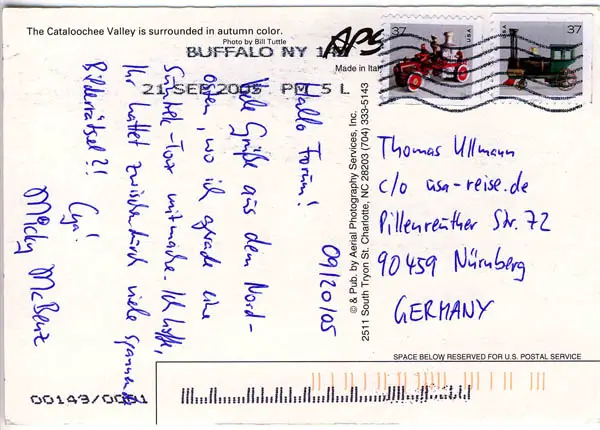 The Cataloochee Valley is surrounded in autumn color.
Photo by Bill Tuttle
BUFFALO NY 142
21 SEP 2005 PM 5 L
APS
Made in Italy
37
USA
37
USA
© & Pub. by Aerial Photography Services, Inc.
2511 South Tryon St. Charlotte, NC 28203 (704) 333-5143
09/20/05
Hallo Forum!
Viele Grüße aus dem Nord-
osten, wo ich grade eine
Südstaaten-Tour mitmache. Ich hoffe,
Ihr hattet zwischendurch viele spannende
Bilderrätsel?!
Cya!
Micky McBenz
Thomas Ullmann
c/o usa-reise.de
Pillenreuther Str. 72
90459 Nürnberg
GERMANY
SPACE BELOW RESERVED FOR U.S. POSTAL SERVICE
00143/0001